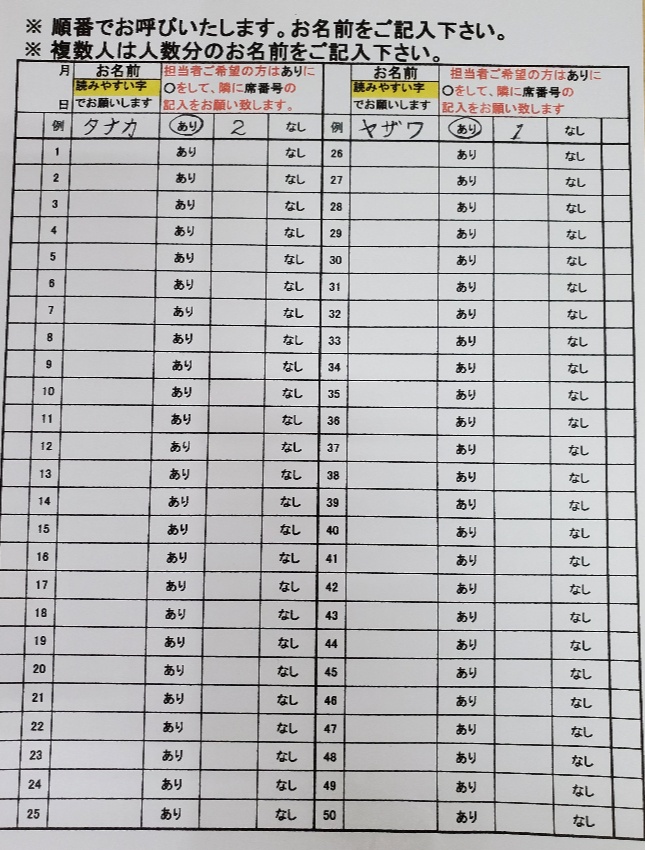 ※ 順番でお呼びいたします。お名前をご記入下さい。
※ 複数人は人数分のお名前をご記入下さい。
月 日 お名前 読みやすい字 でお願いします 担当者ご希望の方はありに 〇をして、隣に席番号の 記入をお願い致します。 お名前 読みやすい字 でお願いします 担当者ご希望の方はありに 〇をして、隣に席番号の 記入をお願い致します
例 タナカ あり 2 なし 例 ヤザワ あり 1 なし
1 あり なし 26 あり なし
2 あり なし 27 あり なし
3 あり なし 28 あり なし
4 あり なし 29 あり なし
5 あり なし 30 あり なし
6 あり なし 31 あり なし
7 あり なし 32 あり なし
8 あり なし 33 あり なし
9 あり なし 34 あり なし
10 あり なし 35 あり なし
11 あり なし 36 あり なし
12 あり なし 37 あり なし
13 あり なし 38 あり なし
14 あり なし 39 あり なし
15 あり なし 40 あり なし
16 あり なし 41 あり なし
17 あり なし 42 あり なし
18 あり なし 43 あり なし
19 あり なし 44 あり なし
20 あり なし 45 あり なし
21 あり なし 46 あり なし
22 あり なし 47 あり なし
23 あり なし 48 あり なし
24 あり なし 49 あり なし
25 あり なし 50 あり なし